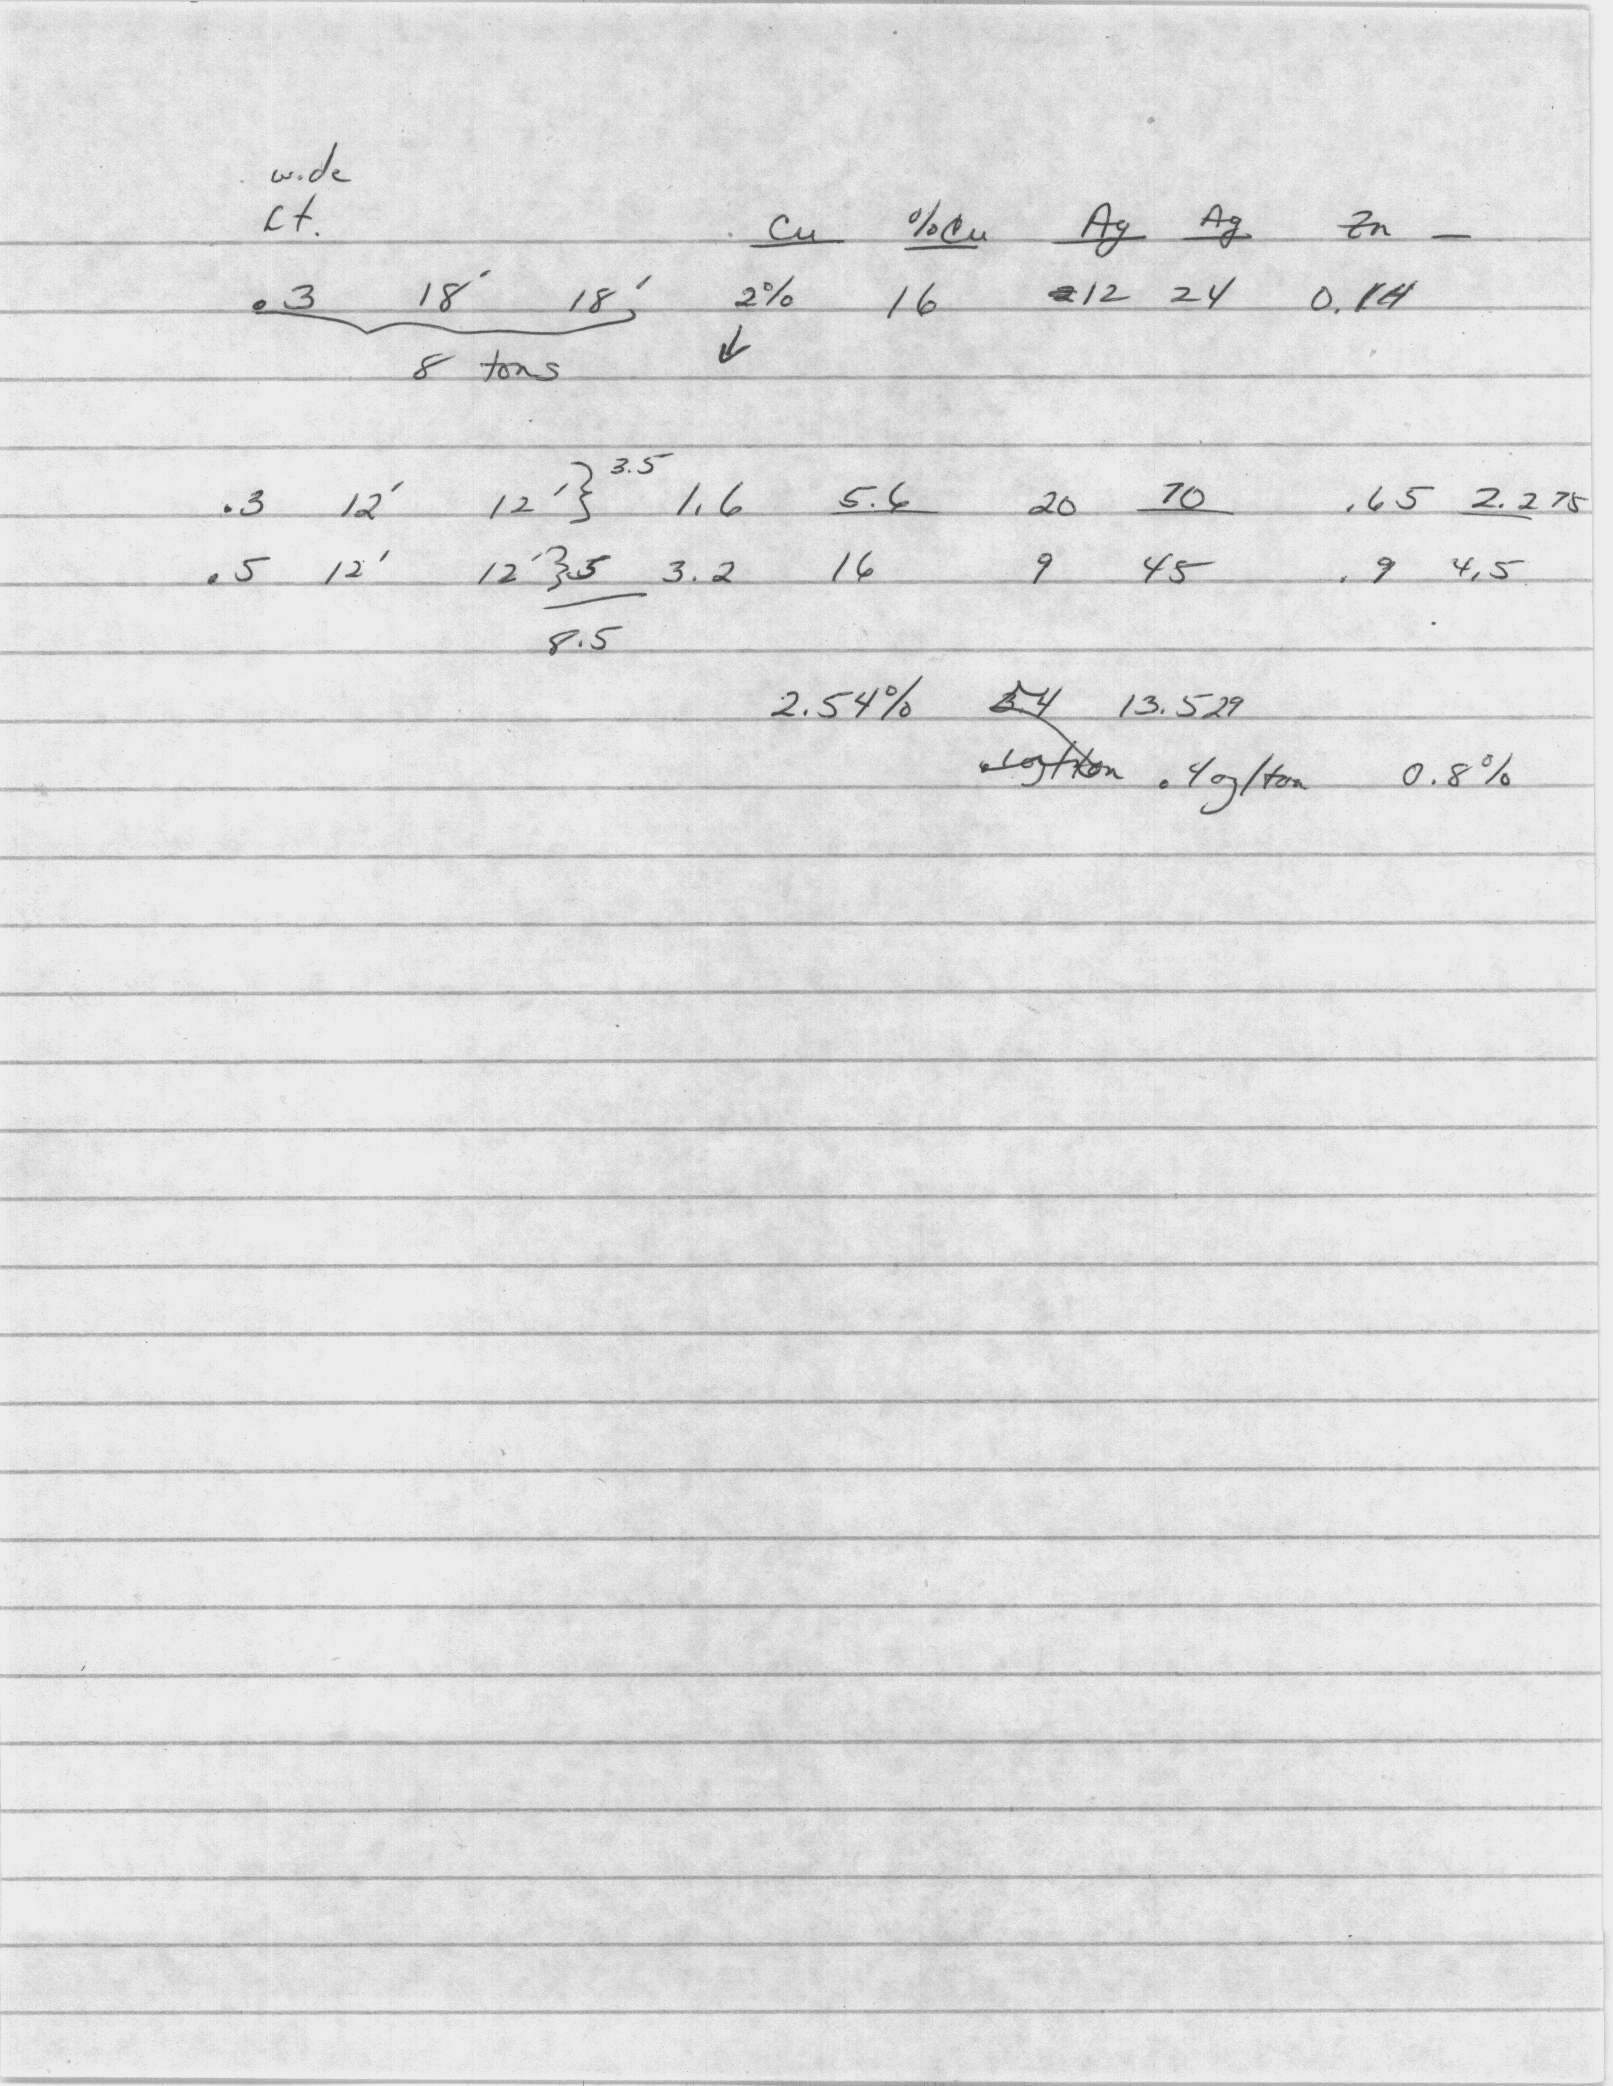 wide
ft.
Cu %Cu Ag Ag Zn —
.3 18' 18' 2% 16 12 24 0.14
8 tons ↓
.3 12' 12' } 3.5 1.6 5.6 20 70 .65 2.275
.5 12' 12' } 5 3.2 16 9 45 .9 4.5
8.5
2.54% 5.4 13.529
.1oz/ton .4oz/ton 0.8%